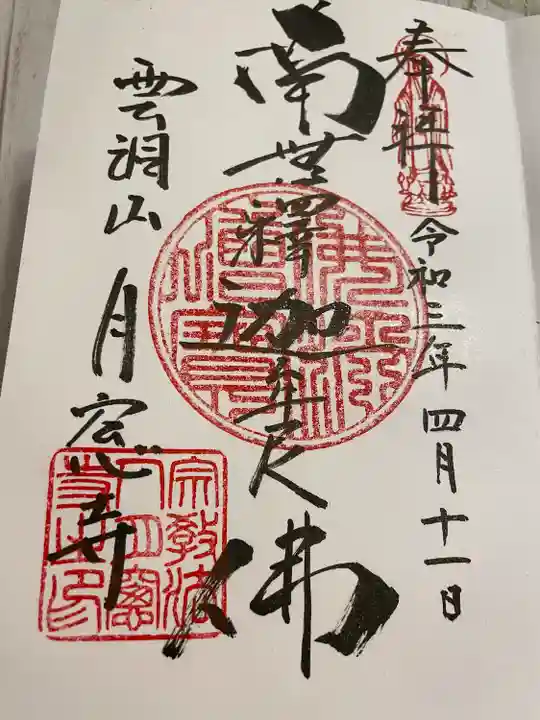 奉拝
令和三年四月十一日
南無釋迦牟尼佛
雲洞山 月窓寺
宗教法人月窓寺之印